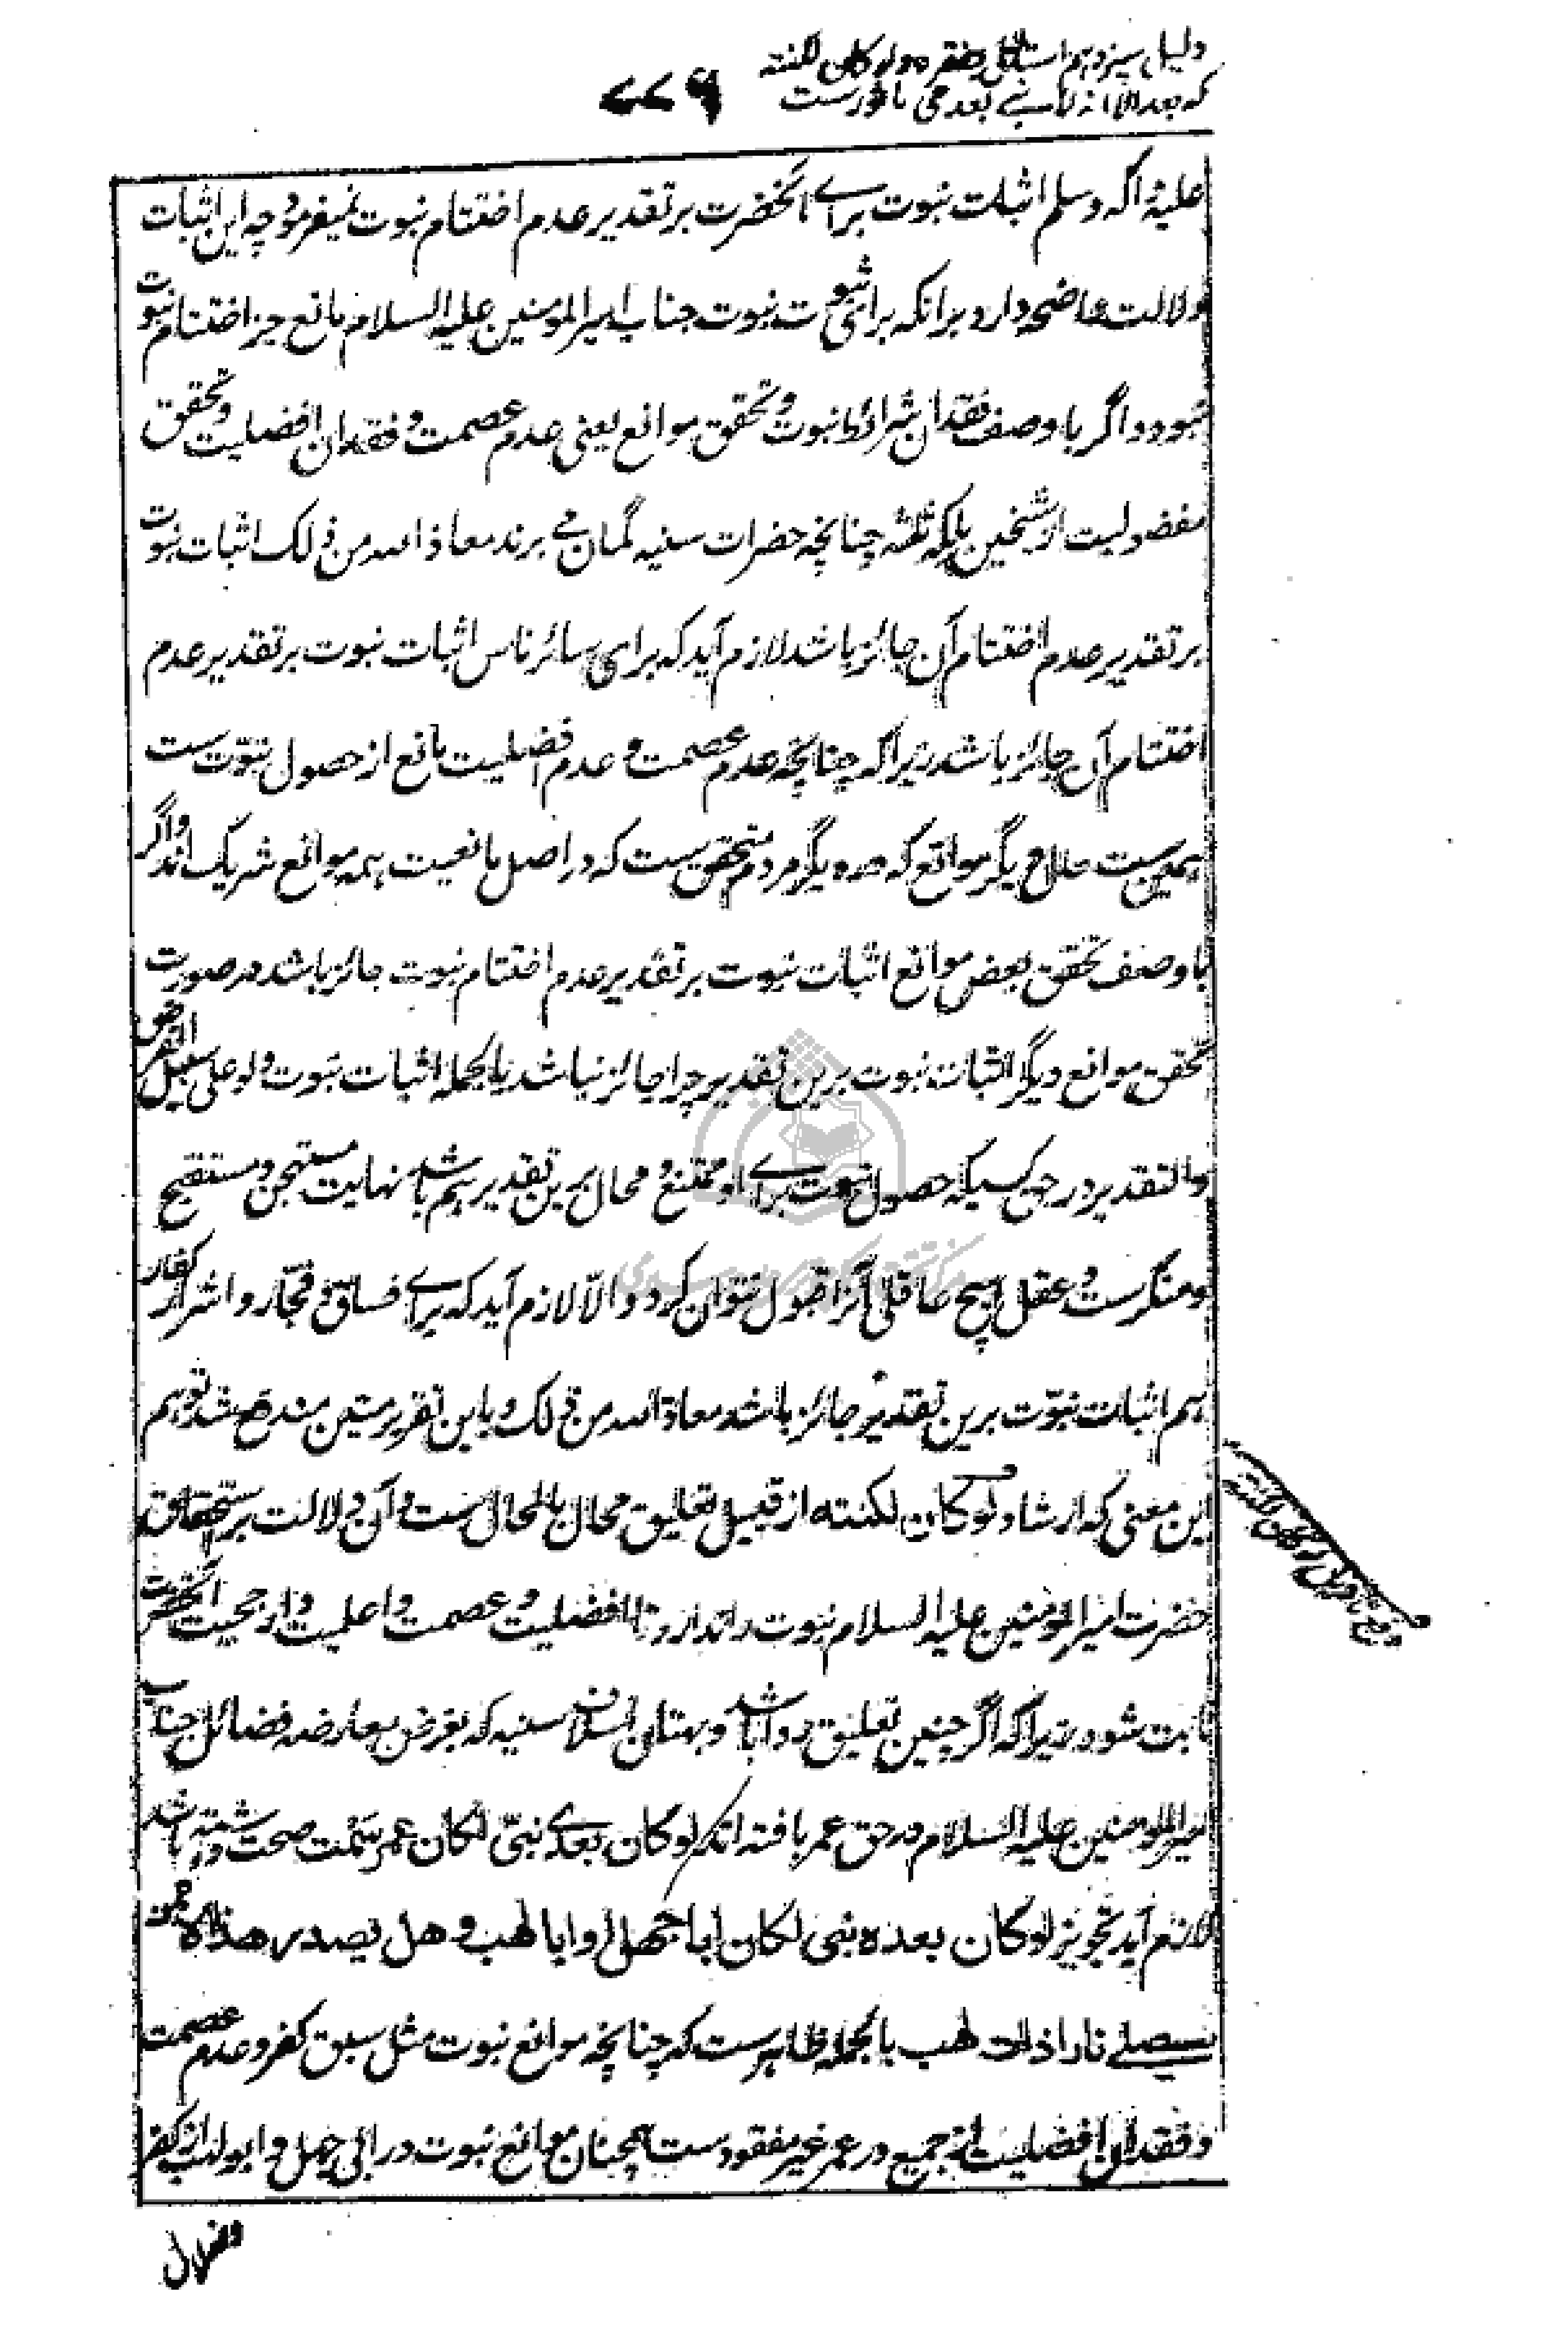 دلیل سیزدهم استدلال بفقره ولو کان لکنته
که بعد الا انه لا نبی بعدی ماثورست
۷۷۶
علیه و آله وسلم اثبات نبوت برای آنحضرت بر تقدیر عدم اختتام نبوت نمیفرمود چه این اثبات
دلالت واضحه دارد بر آنکه برای ثبوت نبوت جناب امیرالمومنین علیه السلام مانع جز اختتام نبوت
نبود و اگر باوصف فقدان شرائط نبوت و تحقق موانع یعنی عدم عصمت و فقدان افضلیت و تحقق
مفضولیت از شیخین بلکه ثلثه چنانچه حضرات سنیه گمان می برند معاذ الله من ذلک اثبات نبوت
بر تقدیر عدم اختتام آن جائز باشد لازم آید که برای سائر ناس اثبات نبوت بر تقدیر عدم
اختتام آن جائز باشد زیرا که چنانچه عدم عصمت و عدم افضلیت مانع از حصول نبوّت ست
همچنین ست حال دیگر موانع که در دیگر مردم متحقق ست که در اصل مانعیت همه موانع شریک اند و اگر
باوصف تحقق بعض موانع اثبات نبوت بر تقدیر عدم اختتام نبوت جائز باشد در صورت
تحقق موانع دیگر اثبات نبوت برین تقدیر چرا جائز نباشد بالجمله اثبات نبوت ولو علی سبیل الفرض
والتقدیر در حق کسیکه حصول نبوت برای او ممتنع و محال برین تقدیر هم باشد نهایت مستهجن و مستقبح
و منکرست و عقل هیچ عاقلی آنرا قبول نتوان کرد و الّا لازم آید که برای فساق و فجّار و اشرار کفار
هم اثبات نبوّت برین تقدیر جائز باشد معاذ الله من ذلک و باین تقریر متین مندفع شد توهم
این معنی که ارشاد ولو کان لکنته از قبیل تعلیق محال بالمحال ست و آن دلالت بر استحقاق
حضرت امیرالمومنین علیه السلام نبوت را ندارد تا افضلیت و عصمت و اعلمیت و ارجحیت آنحضرت
ثابت شود زیرا که اگر چنین تعلیق روا باشد و بهتان اسلاف سنیه که بغرض معارضه فضائل جناب
امیرالمومنین علیه السلام در حق عمر بافته اند لو کان بعدی نبیّ لکان عمر سمت صحت داشته باشد
لازم آید تجویز لو کان بعده نبی لکان ابا جهل او ابا لهب و هل یصدر هذا الا ممن
سیصلی نارا ذات لهب بالجمله ظاهرست که چنانچه موانع نبوت مثل سبق کفر و عدم عصمت
و فقدان افضلیت از جمیع در عمر غیر مفقودست همچنان موانع نبوت در ابی جهل و ابو لهب از کفر
وضلال